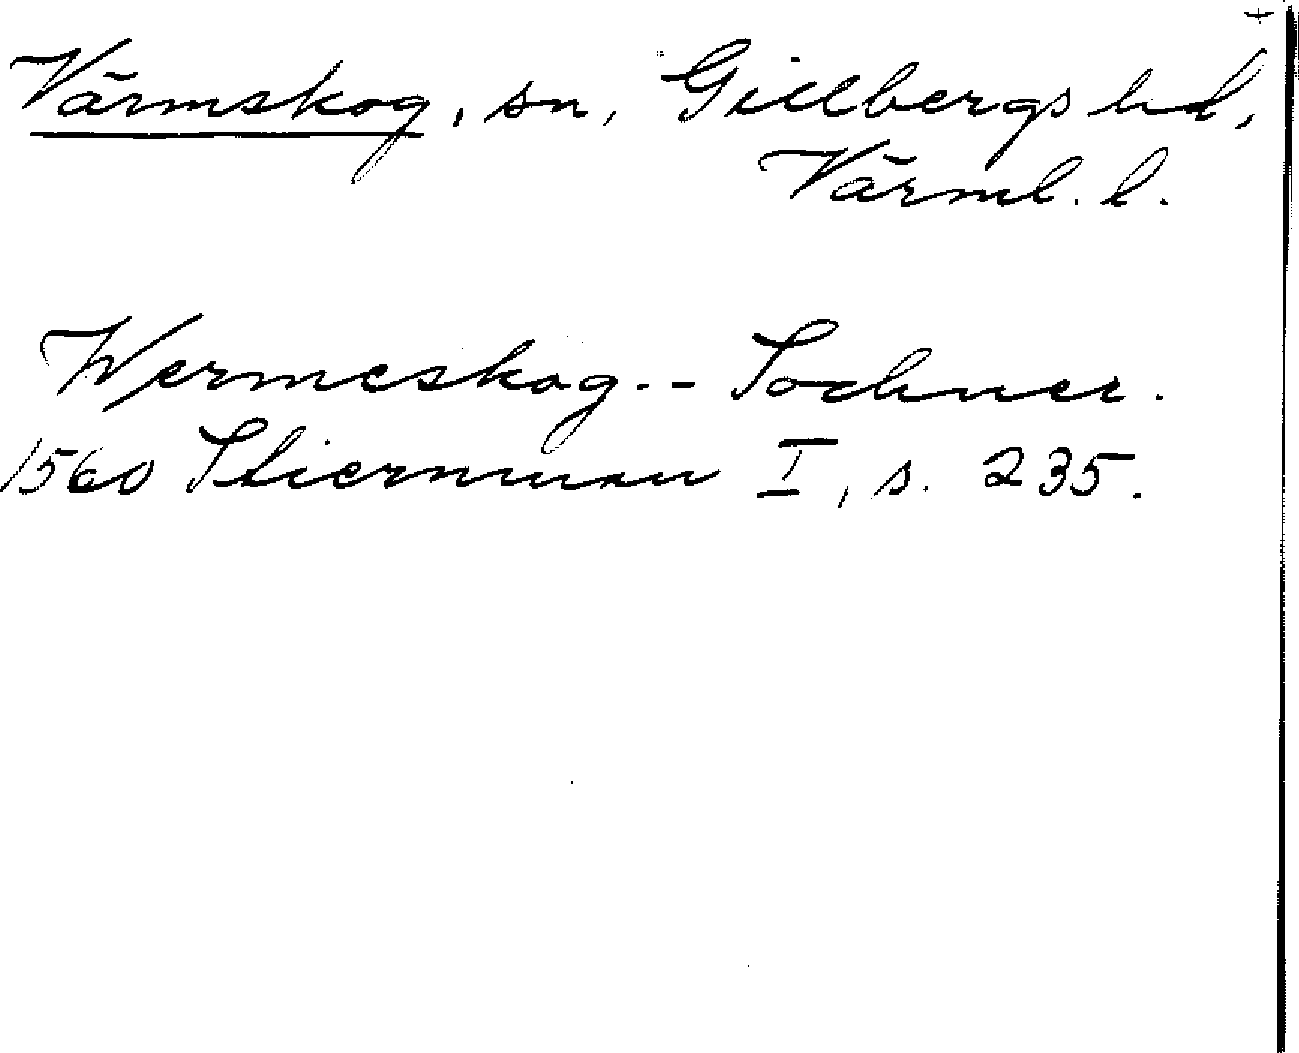 Värmskog, sn, Gillbergs hd,
Värml. l.
Wermeskog -- Sochner.
1560 Stiernman I, s. 235.